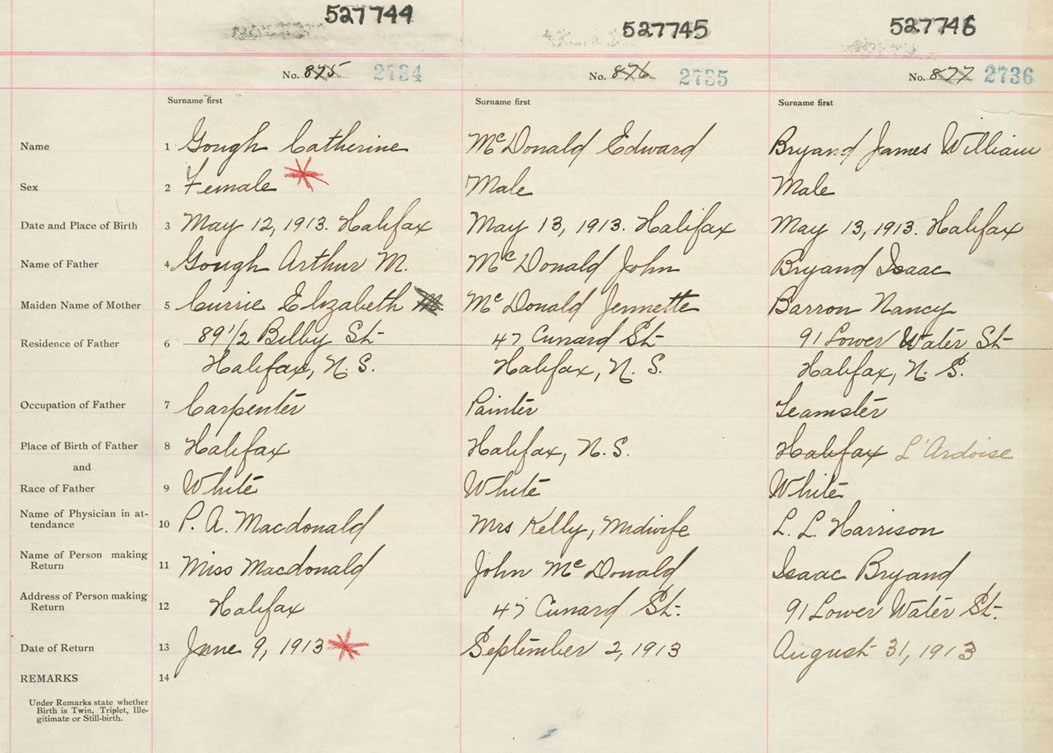 527744 527745 527746
No. 875 2734 No. 876 2735 No. 877 2736
Surname first Surname first Surname first
Name 1 Gough Catherine McDonald Edward Bryand James William
Sex 2 Female Male Male
Date and Place of Birth 3 May 12, 1913. Halifax May 13, 1913. Halifax May 13, 1913. Halifax
Name of Father 4 Gough Arthur M. McDonald John Bryand Isaac
Maiden Name of Mother 5 Currie Elizabeth McDonald Jennette Barron Nancy
Residence of Father 6 89 1/2 Bilby St- 47 Cunard St- 91 Lower Water St-
Halifax, N.S. Halifax, N.S. Halifax, N.S.
Occupation of Father 7 Carpenter Painter Teamster
Place of Birth of Father 8 Halifax Halifax, N.S. Halifax L'Ardoise
and
Race of Father 9 White White White
Name of Physician in at-
tendance 10 P. A. Macdonald Mrs Kelly, Midwife L. L. Harrison
Name of Person making
Return 11 Miss Macdonald John McDonald Isaac Bryand
Address of Person making
Return 12 Halifax 47 Cunard St-. 91 Lower Water St-.
Date of Return 13 June 9, 1913 September 2, 1913 August 31, 1913
REMARKS 14
Under Remarks state whether
Birth is Twin, Triplet, Ille-
gitimate or Still-birth.